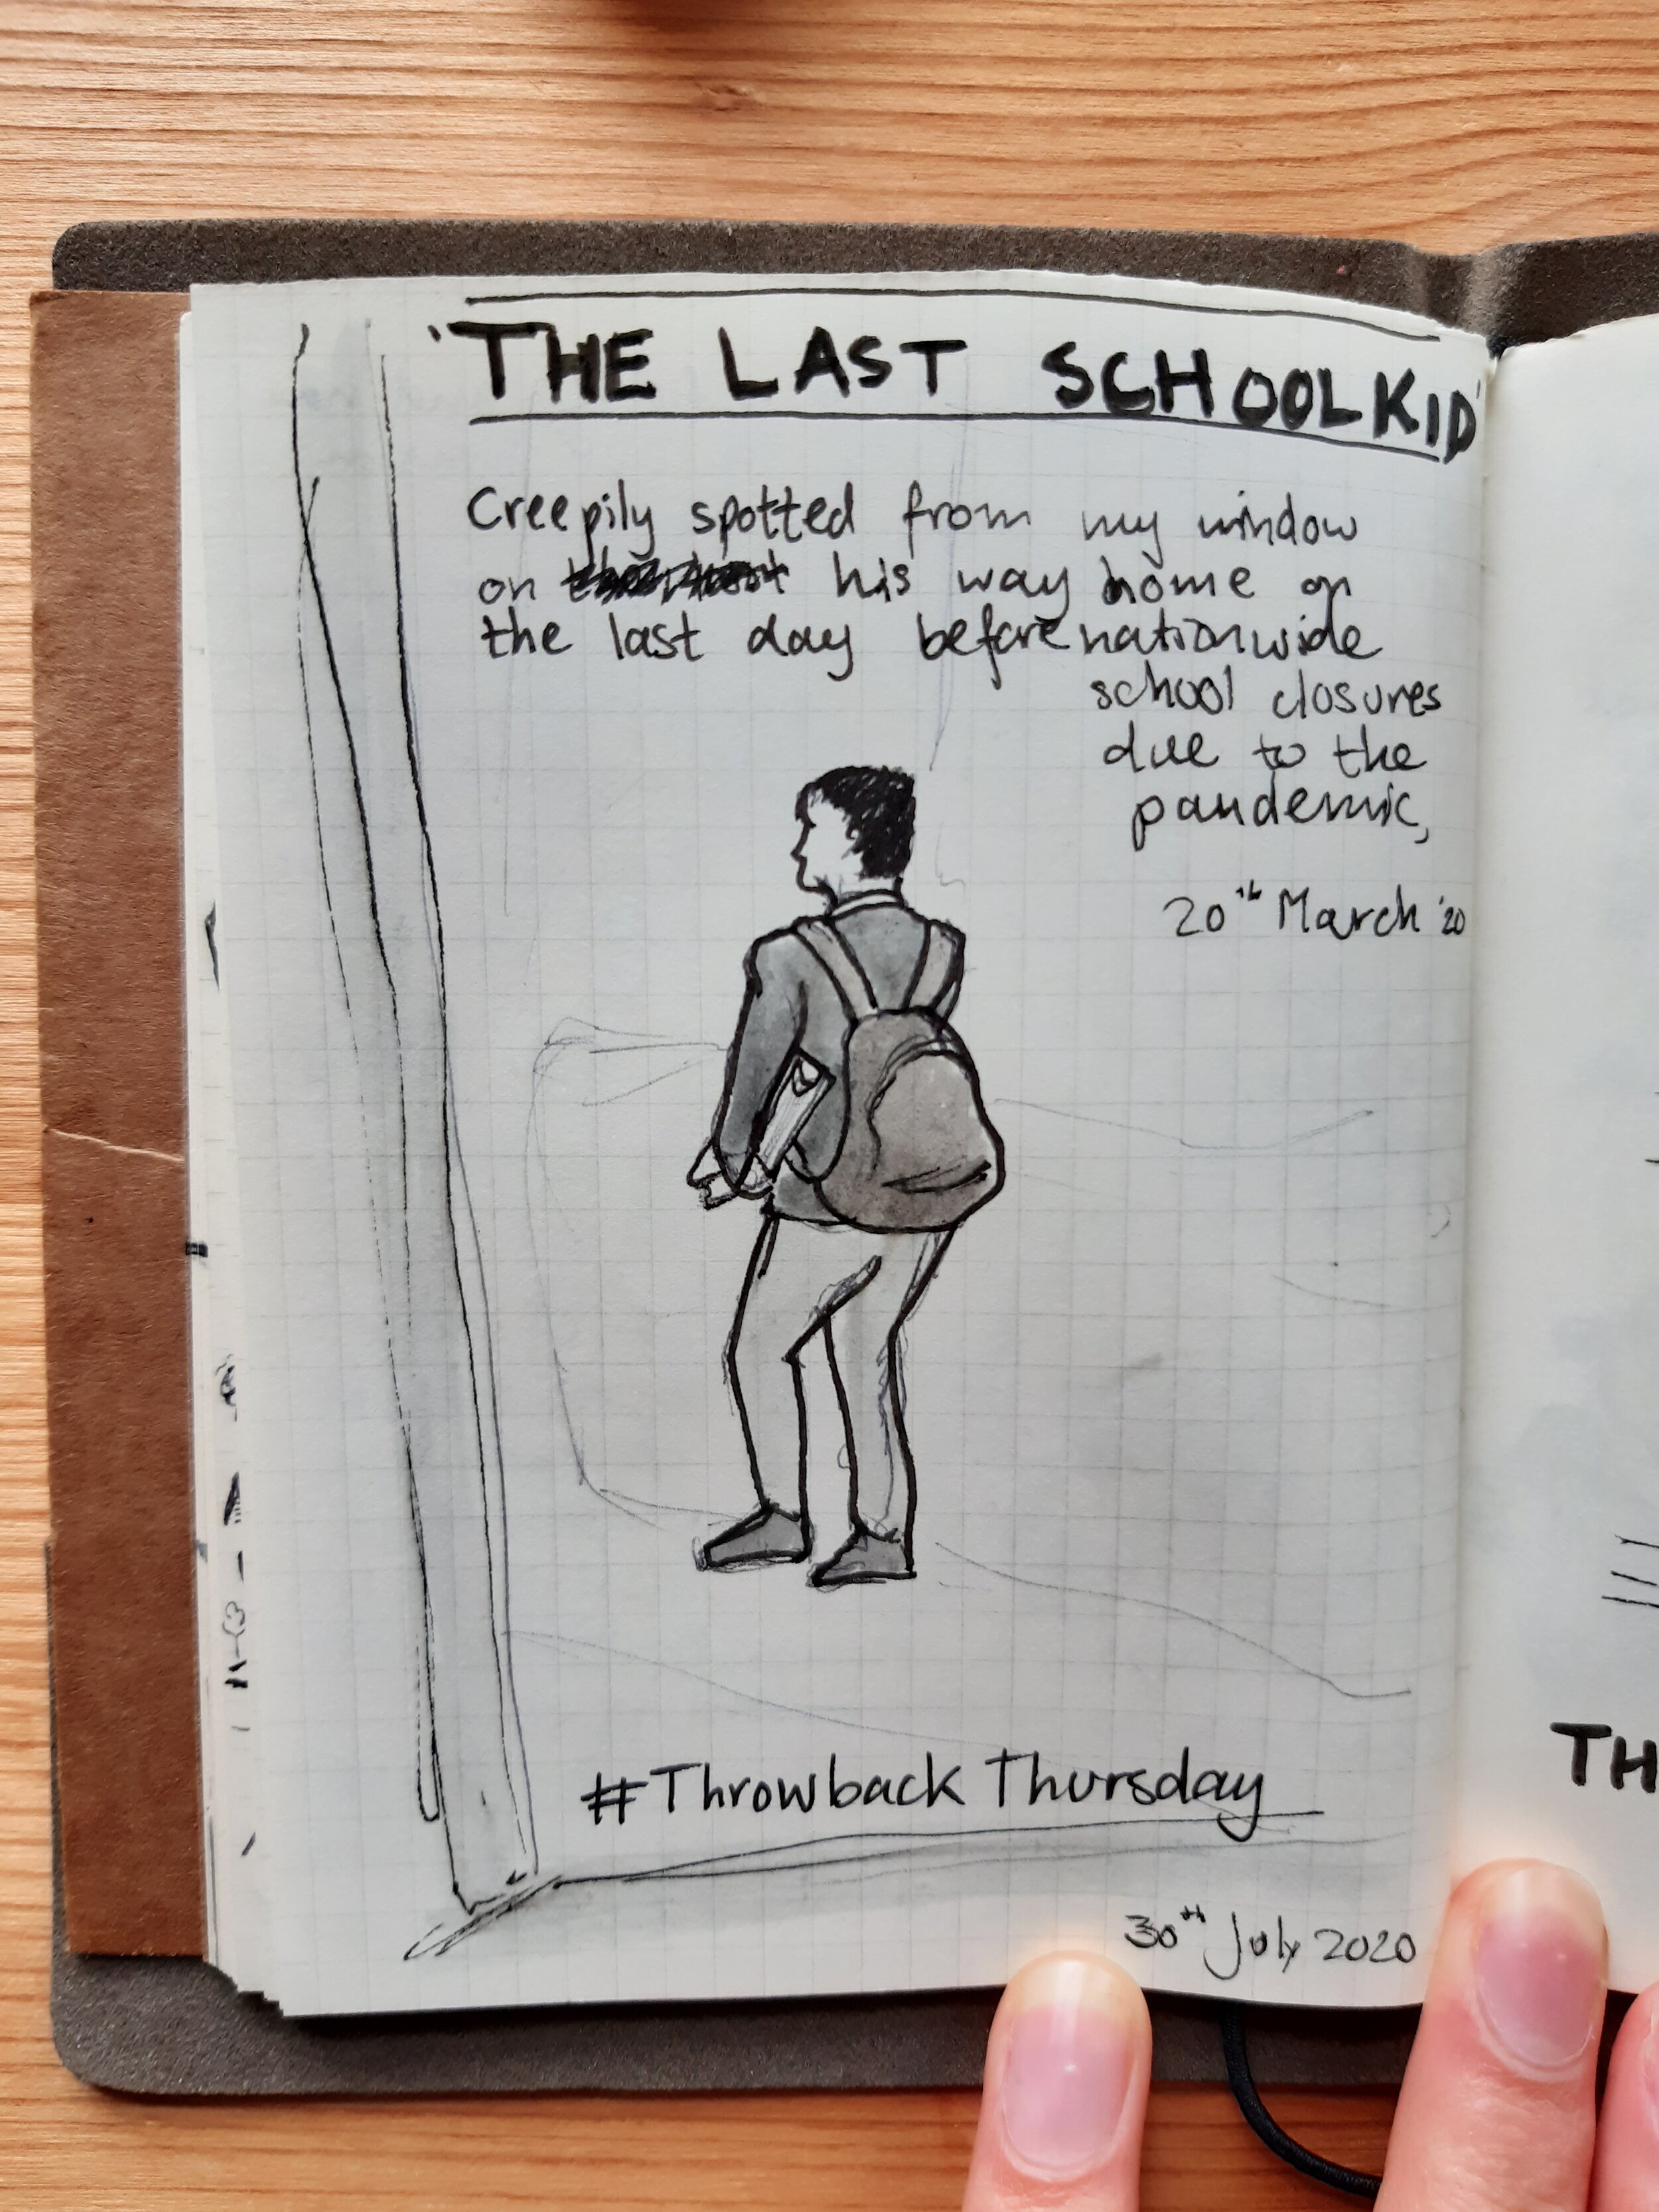 'THE LAST SCHOOLKID'
Creepily spotted from my window
on his way home on
the last day before nationwide
school closures
due to the
pandemic,
20th March '20
#Throwback Thursday
30th July 2020
TH